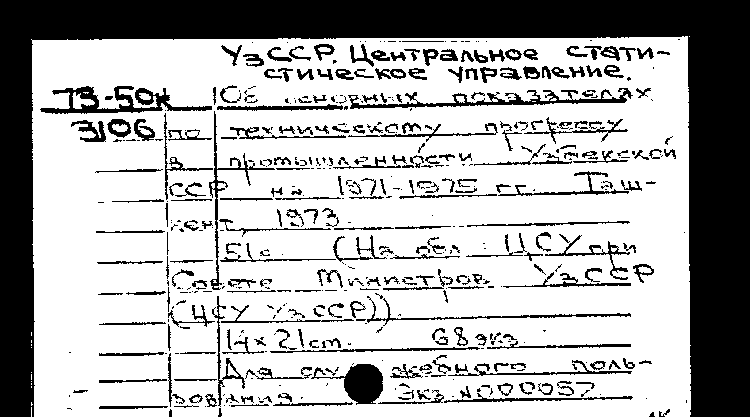 УзССР. Центральное стати-
стическое управление.
73-50к Об основных показателях
3106 по техническому прогрессу
в промышленности Узбекской
ССР на 1971-1975 гг. Таш-
кент, 1973.
51с. (На обл.: ЦСУ при
Совете Министров УзССР
(ЦСУ УзССР))
14×21cm. 68 экз.
Для служебного поль-
зования. Экз. №000057